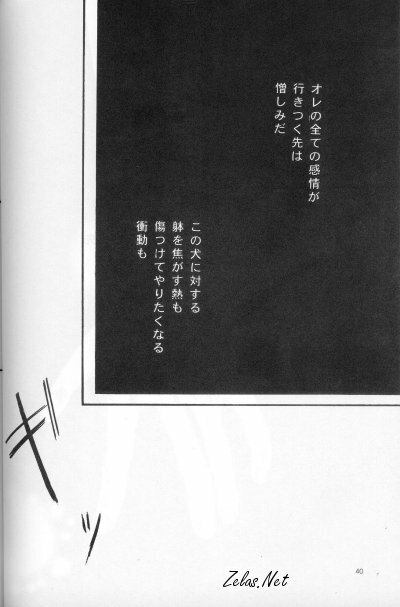 オレの全ての感情が
行きつく先は
憎しみだ
この犬に対する
躰を焦がす熱も
傷つけてやりたくなる
衝動も
ギッ
40
Zelas.Net